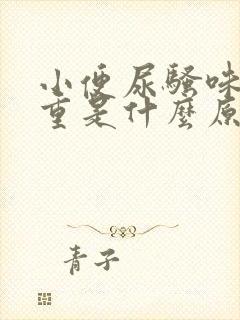 小便尿騷味
重是什麼原
青子